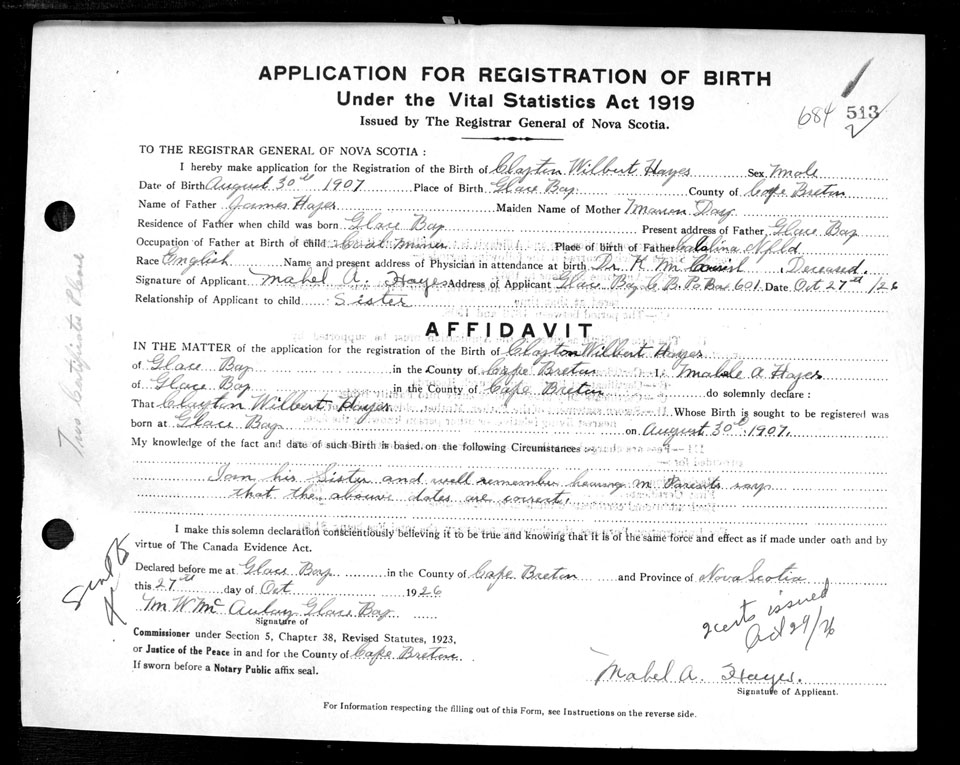 APPLICATION FOR REGISTRATION OF BIRTH
Under the Vital Statistics Act 1919
Issued by The Registrar General of Nova Scotia.
684 513
2
TO THE REGISTRAR GENERAL OF NOVA SCOTIA :
I hereby make application for the Registration of the Birth of Clayton Wilbert Hayes Sex Male
Date of Birth August 30th 1907 Place of Birth Glace Bay County of Cape Breton
Name of Father James Hayes Maiden Name of Mother Marion Day
Residence of Father when child was born Glace Bay Present address of Father Glace Bay
Occupation of Father at Birth of child Coal Miner Place of Birth of Father Catalina Nfld
Race English Name and present address of Physician in attendance at birth Dr. K. M. Deceased.
Signature of Applicant Mabel A. Hayes Address of Applicant Glace Bay C. B. Po Box 601 Date Oct 27th /26
Relationship of Applicant to child Sister
AFFIDAVIT
IN THE MATTER of the application for the registration of the Birth of Clayton Wilbert Hayes
of Glace Bay in the County of Cape Breton I, Mable A Hayes
of Glace Bay in the County of Cape Breton do solemnly declare :
That Clayton Wilbert Hayes Whose Birth is sought to be registered was
born at Glace Bay on August 30th 1907.
My knowledge of the fact and date of such Birth is based on the following Circumstances :
I am his Sister and well remember hearing m Parents say
that the above dates are correct.
I make this solemn declaration conscientiously believing it to be true and knowing that it is of the same force and effect as if made under oath and by
virtue of The Canada Evidence Act.
Declared before me at Glace Bay in the County of Cape Breton and Province of Nova Scotia
this 27th day of Oct 1926
M W McAulay Glace Bay
Signature of
Commissioner under Section 5, Chapter 38, Revised Statutes, 1923,
or Justice of the Peace in and for the County of Cape Breton
If sworn before a Notary Public affix seal.
2 certs issued
Oct 29/26
Mabel A. Hayes.
Signature of Applicant.
For Information respecting the filling out of this Form, see Instructions on the reverse side.
Two Certificates Please